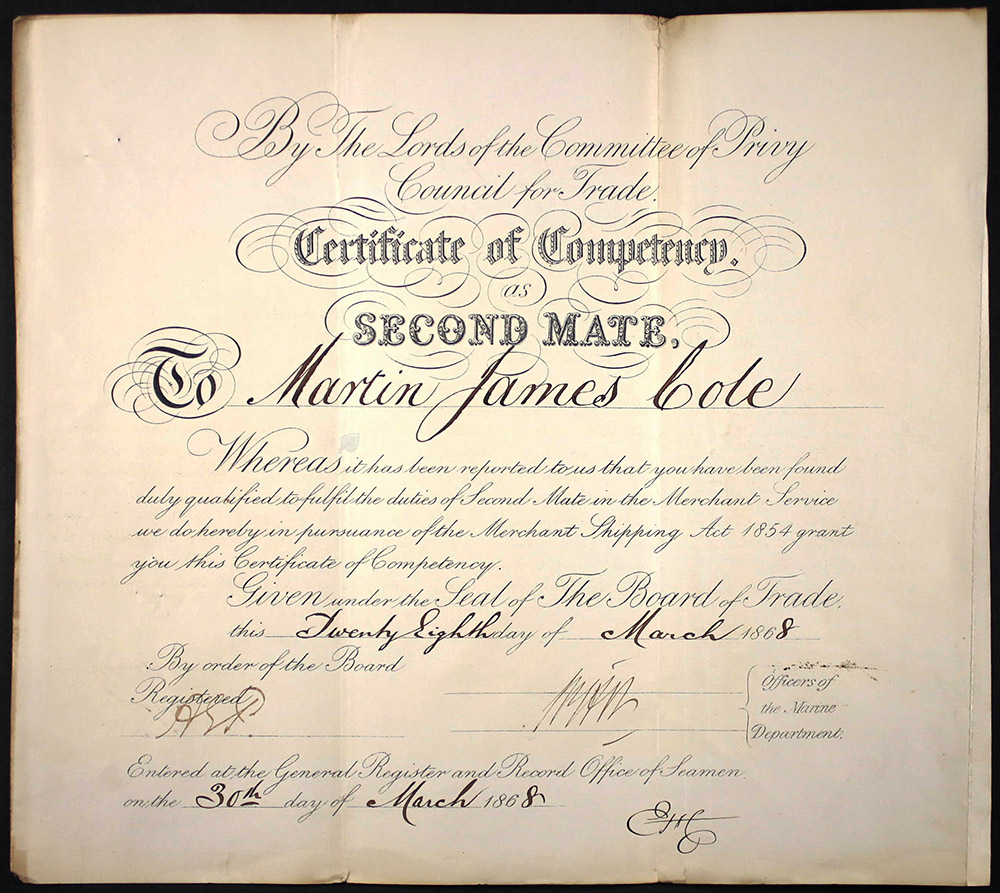 By The Lords of the Committee of Privy
Council for Trade.
Certificate of Competency.
as
SECOND MATE.
To Martin James Cole
Whereas it has been reported to us that you have been found
duly qualified to fulfil the duties of Second Mate in the Merchant Service
we do hereby in pursuance of the Merchant Shipping Act 1854 grant
you this Certificate of Competency.
Given under the Seal of The Board of Trade.
this Twenty Eighth day of March 1868
By order of the Board
Registered
Officers of
the Marine
Department.
Entered at the General Register and Record Office of Seamen
on the 30th day of March 1868